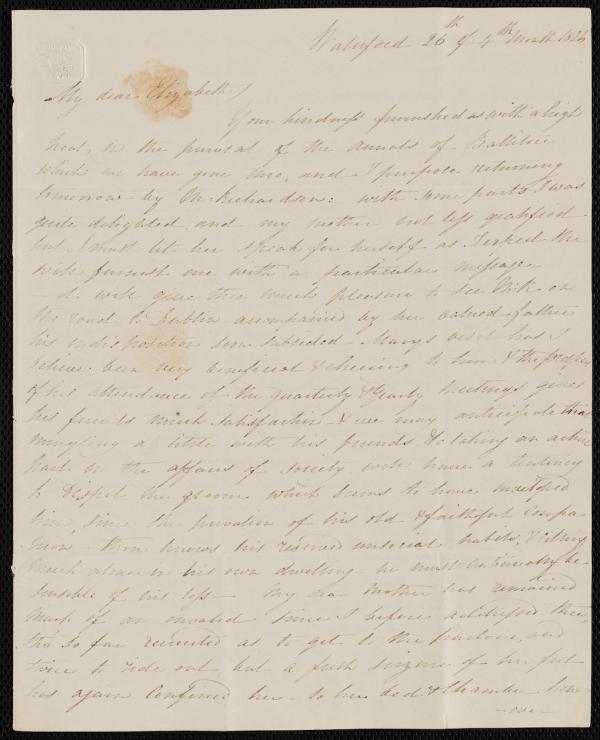 Waterford 26th of 4th Month 1826
My dear Elizabeth,
Your kindness furnished us with a high
treat, in the perusal of the annals of Ballitore
which we have gone thro, and I purpose returning
tomorrow by Richardson: with some parts I was
quite delighted and my mother not less gratified
but I must let her speak for herself as I expect she
will furnish me with a particular message
– it will give thee much pleasure to see on
the road to Dublin accompanied by her valued father
his indisposition soon subsided – Mary's visit has I
believe been very beneficial & cheering to him & the prospect
of his attendance of the quarterly & Yearly Meetings gives
his friends much satisfaction – & we may anticipate this
mingling a little with his friends & taking an active
part in the affairs of Society will have a tendency
to dispel the gloom which seems to have
him, since the privation of his old & faithful Compa
nion – thou knows his retired unsocial habits, & sitting
much alone in his own dwelling he must be
sensible of his loss – My dear Mother has remained
much of an invalid since I before addressed thee,
tho' so far recruited as to get to the parlour, and
twice to ride out but a fresh seizure of her feet
has again confined her to her bed & Chamber how
– over